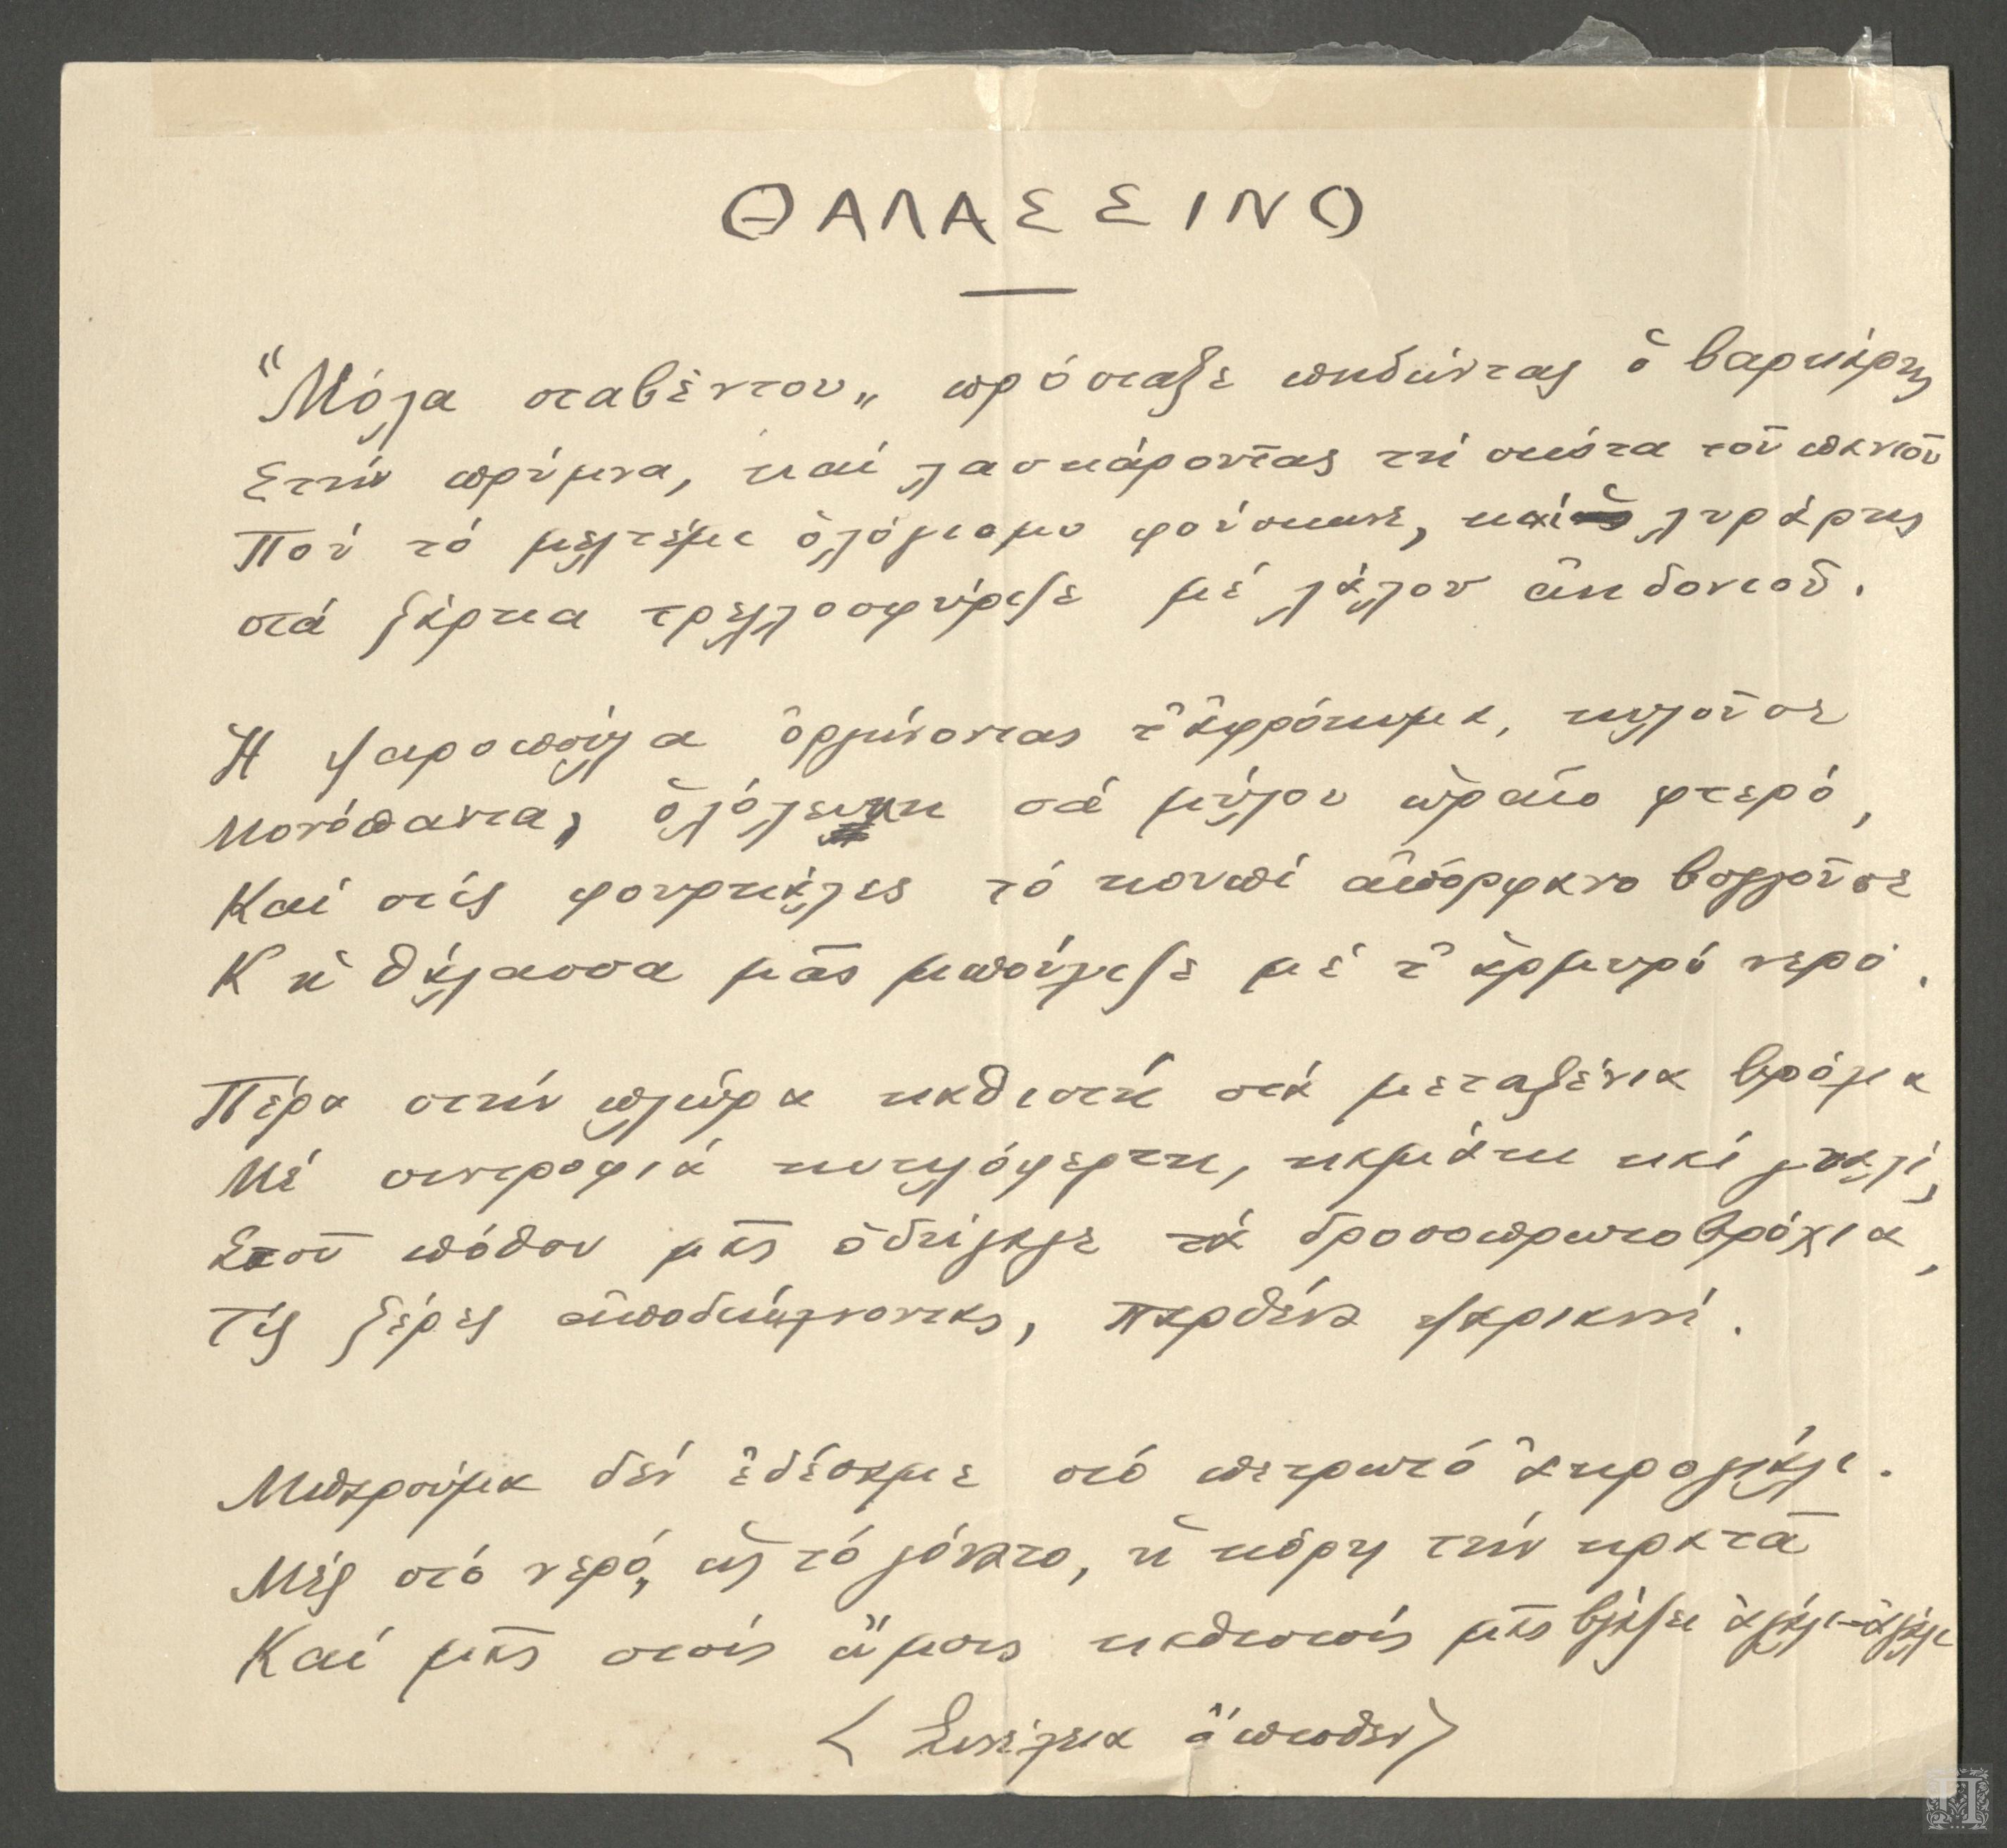 ΘΑΛΑΣΣΙΝΟ
"Μόλα σταβέντου„ πρόσταξε πηδώντας ὁ βαρκάρης
Στήν πρύμνα, καί λασκάροντας τή σκότα τοῦ πανιοῦ
Πού τό μελτέμι ὁλόγιομο φούσκωνε, καί λυράρης
στά ξάρτια τρελλοσφύριζε μέ λάλον ἀηδονιοῦ.
Ἡ ψαροπούλα ὀργώνοντας τ' ἀφρόκυμα, κυλοῦσε
Μονόπαντα, ὁλόλευκη σά μύλου ὡραῖο φτερό,
Καί στίς φουρκάλες τό κουπί ἀπόρφανο βογγοῦσε
Κ ἡ θάλασσα μᾶς μπούγιαζε μέ τ' ἁρμυρό νερό.
Πέρα στήν πλώρα καθιστή στά μεταξένια βρόχια
Μέ συντροφιά κοχυλόφερτη, καμάκι καί γυαλί,
Στοῦ πόθου μᾶς ὁδήγαγε τά δροσοπρωτοβρόχια,
Τίς ξέρες ἀποδιώχνοντας, παρθένα ψαριανή.
Μπαρούμα δέν ἐδέσαμε στό πετρωτό ἀκρογιάλι.
Μές στό νερό, ὡς τό γόνατο, ἡ κόρη τήν κρατᾶ
Καί μᾶς στούς ὤμους καθιστούς μᾶς βγάζει ἀγάλι-ἀγάλι
< Συνέχεια ὄπισθεν >